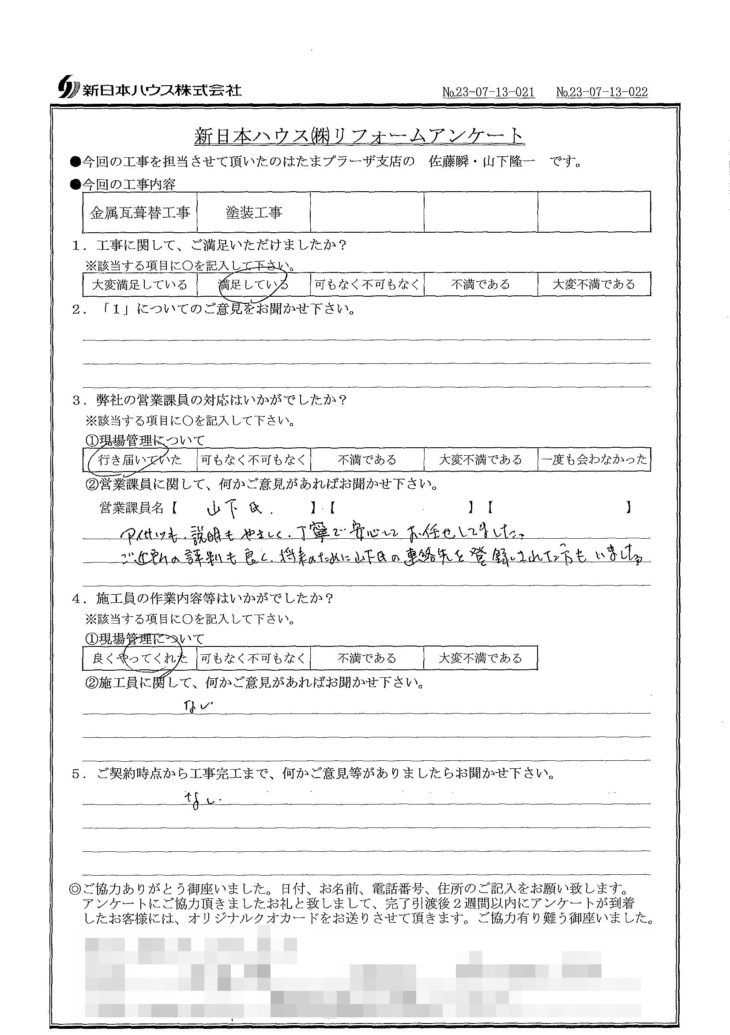 新日本ハウス株式会社 №23-07-13-021 №23-07-13-022
新日本ハウス㈱リフォームアンケート
●今回の工事を担当させて頂いたのはたまプラーザ支店の 佐藤瞬・山下隆一 です。
●今回の工事内容
金属瓦葺替工事 塗装工事
1．工事に関して、ご満足いただけましたか？
※該当する項目に○を記入して下さい。
大変満足している 満足している 可もなく不可もなく 不満である 大変不満である
2．「1」についてのご意見をお聞かせ下さい。
3．弊社の営業課員の対応はいかがでしたか？
※該当する項目に○を記入して下さい。
①現場管理について
行き届いていた 可もなく不可もなく 不満である 大変不満である 一度も会わなかった
②営業課員に関して、何かご意見があればお聞かせ下さい。
営業課員名【 山下氏. 】【 】【 】
アイサツも、説明もやさしく、丁寧で安心してお任せしてました。
ご近所の評判も良く、将来のために山下氏の連絡先を登録された方もいました
4．施工員の作業内容等はいかがでしたか？
※該当する項目に○を記入して下さい。
①現場管理について
良くやってくれた 可もなく不可もなく 不満である 大変不満である
②施工員に関して、何かご意見があればお聞かせ下さい。
ない
5．ご契約時点から工事完工まで、何かご意見等がありましたらお聞かせ下さい。
なし.
◎ご協力ありがとう御座いました。日付、お名前、電話番号、住所のご記入をお願い致します。
アンケートにご協力頂きましたお礼と致しまして、完了引渡後2週間以内にアンケートが到着
したお客様には、オリジナルクオカードをお送りさせて頂きます。ご協力有り難う御座いました。